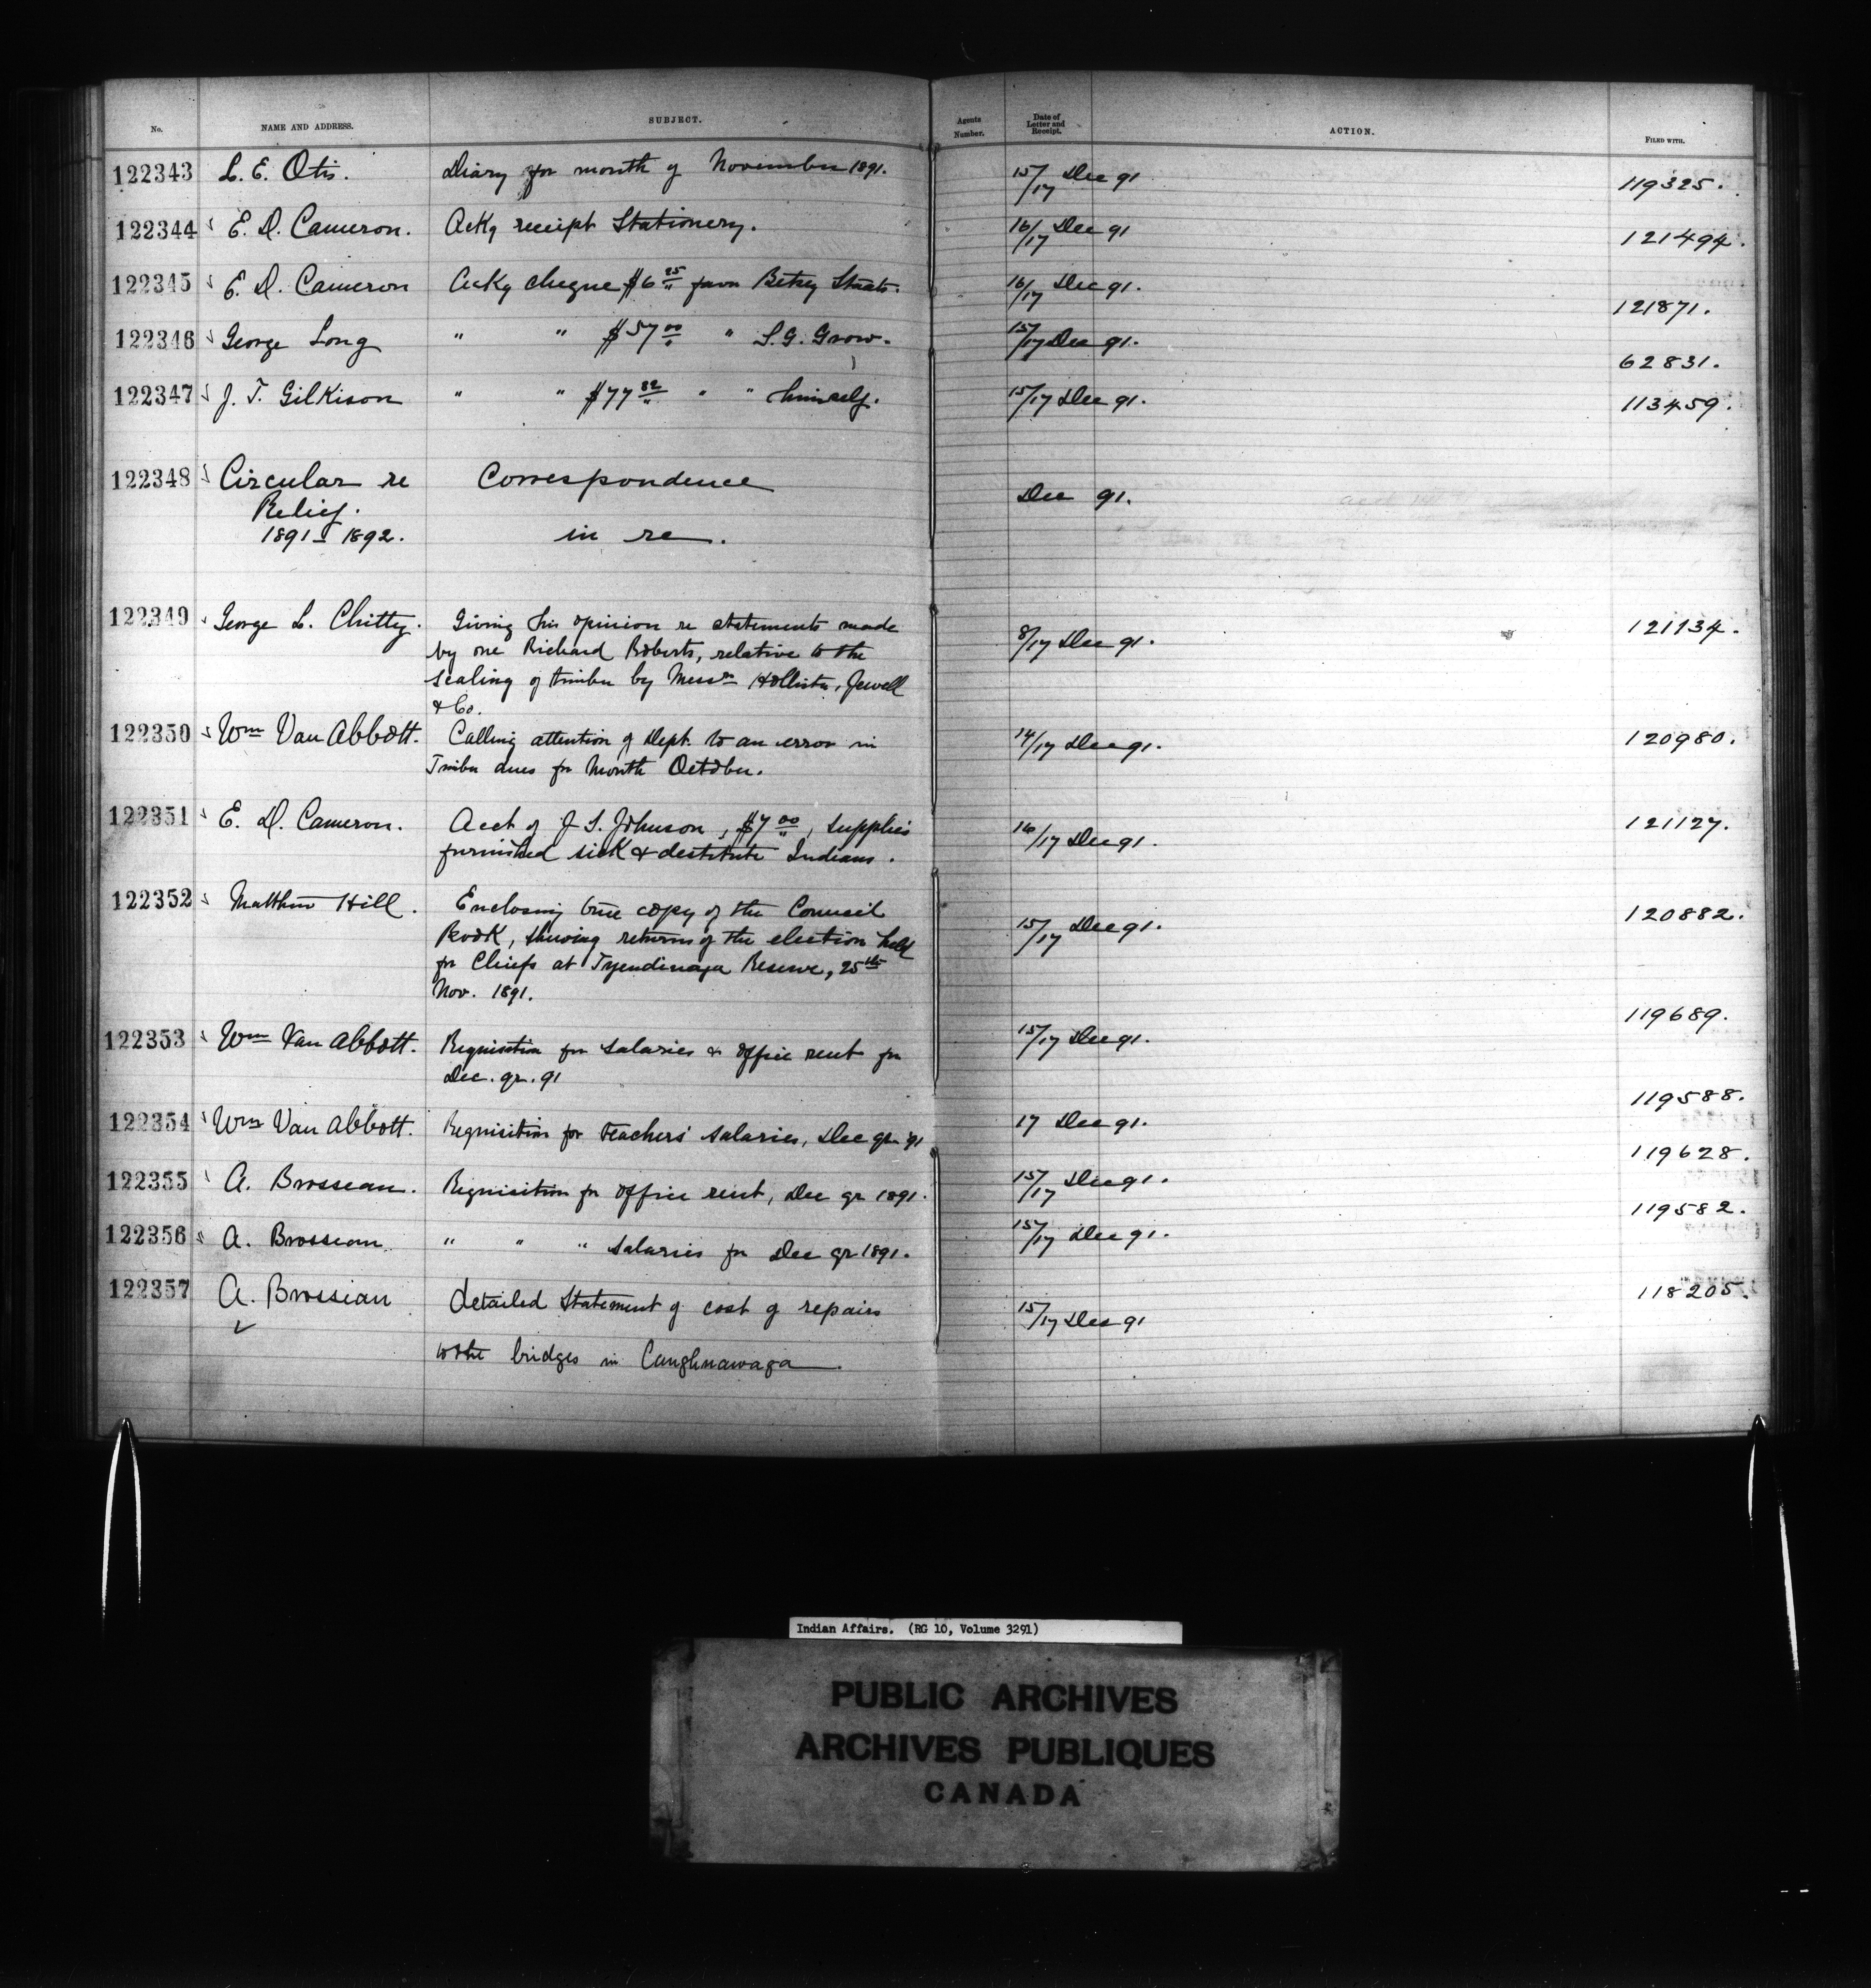 No. NAME AND ADDRESS. SUBJECT. Agents Number. Date of Letter and Receipt. ACTION. FILED WITH.
122343 L. E. Otis. Diary for month of November 1891. 15/17 Dec 91 119325.
122344 E. D. Cameron. Ackg receipt Stationery. 16/17 Dec 91 121494.
122345 E. D. Cameron Ackg cheque $6 25 favor Betsy Staats. 16/17 Dec 91. 121871.
122346 George Long " " $57 00 " S. G. Grow. 15/17 Dec 91. 62831.
122347 J. T. Gilkison " " $77 82 " " himself. 15/17 Dec 91. 113459.
122348 Circular re Correspondence Dec 91.
Relief.
1891-1892. in re.
122349 George L. Chitty. Giving his opinion re statements made 8/17 Dec 91. 121134.
by one Richard Roberts, relative to the
scaling of timber by Messrs Hollister, Jewell
& Co.
122350 Wm Van Abbott. Calling attention of Dept. to an error in 14/17 Dec 91. 120980.
Timber dues for Month October.
122351 E. D. Cameron. Acct of J S. Johnson, $7 00, supplies 16/17 Dec 91. 121127.
furnished sick & destitute Indians.
122352 Matthew Hill. Enclosing true copy of the Council 15/17 Dec 91. 120882.
Book, shewing returns of the election held
for Chiefs at Tyendinaga Reserve, 25th
Nov. 1891.
122353 Wm Van Abbott. Requisition for Salaries & Office rent for 15/17 Dec 91. 119689.
Dec. qr. 91
122354 Wm Van Abbott. Requisition for teachers' salaries, Dec qr 91 17 Dec 91. 119588.
122355 A. Brosseau. Requisition for Office rent, Dec qr 1891. 15/17 Dec 91. 119628.
122356 A. Brosseau " " " Salaries for Dec qr 1891. 15/17 Dec 91. 119582.
122357 A. Brosseau detailed Statement of cost of repairs 15/17 Dec 91 118205.
to the bridges in Caughnawaga.
Indian Affairs. (RG 10, Volume 3291)
PUBLIC ARCHIVES
ARCHIVES PUBLIQUES
CANADA